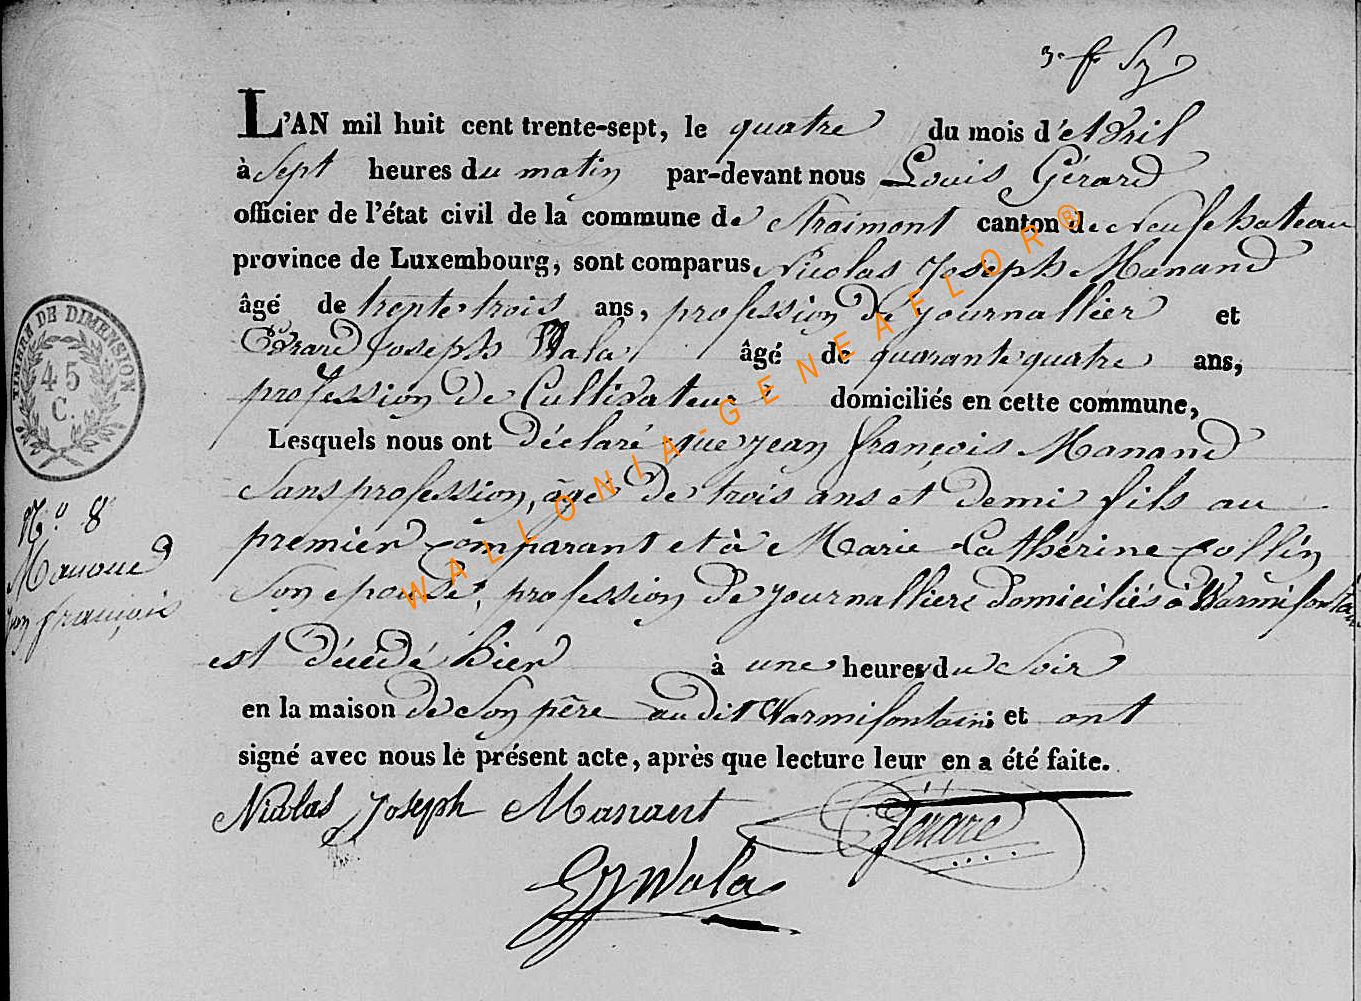 3. f. Sz
L'AN mil huit cent trente-sept, le quatre du mois d'Avril
à Sept heures du matin par-devant nous Louis Gérard
officier de l'état civil de la commune de Straimont canton de Neufchateau
province de Luxembourg, sont comparus Nicolas Joseph Manand
âgé de trente trois ans, profession de journallier et
Erard Joseph Wala âgé de quarante quatre ans,
profession de Cultivateur domiciliés en cette commune,
Lesquels nous ont déclaré que jean françois Manand
Sans profession, âgé de trois ans et demi fils au
premier comparant et à Marie Cathérine Collin
Son epouse, profession de journalliere domiciliés à Warmifontaine
est décédé hier à une heures du Soir
en la maison de Son père audit Warmifontaine; et ont
signé avec nous le présent acte, après que lecture leur en a été faite.
Nicolas Joseph Manant Gérard
EJWala
TIMBRE DE DIMENSION
45
C.
N.º 8
Manand
jean françois
WALLONIA-GENEAFLOR®